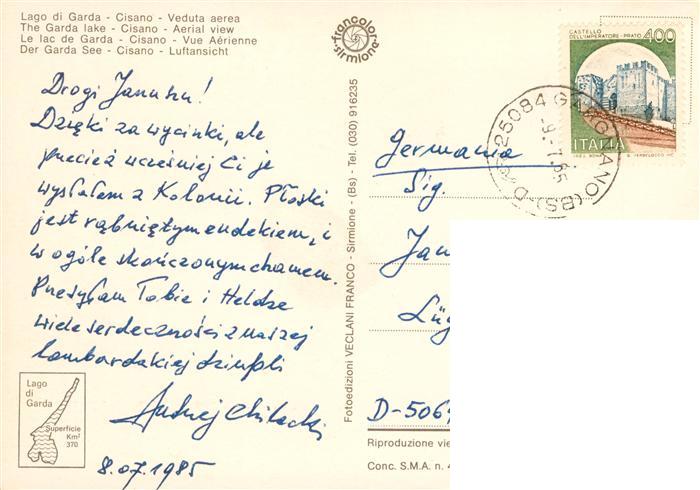 Lago di Garda - Cisano - Veduta aerea
The Garda lake - Cisano - Aerial view
Le lac de Garda - Cisano - Vue Aérienne
Der Garda See - Cisano - Luftansicht
francolor
sirmione
CASTELLO
DELL'IMPERATORE - PRATO 400
ITALIA
25084 GARGNANO (BS)
Drogi Januszu!
Dzięki za wycinki, ale
przecież wcześniej Ci je
wysłałem z Kolonii. Płoski
jest rąbniętym endekiem, i
w ogóle skończonym chamem.
Przesyłam Tobie i Heldze
wiele serdeczności z naszej
lombardzkiej dziupli
Andrzej
8.07.1985
Lago
di
Garda
Superficie
Km²
370
Fotoedizioni VECLANI FRANCO - Sirmione - (Bs) - Tel. (030) 916235
Germania
Sig.
Jan
Lüg
D-506
Riproduzione vie
Conc. S.M.A. n. 4